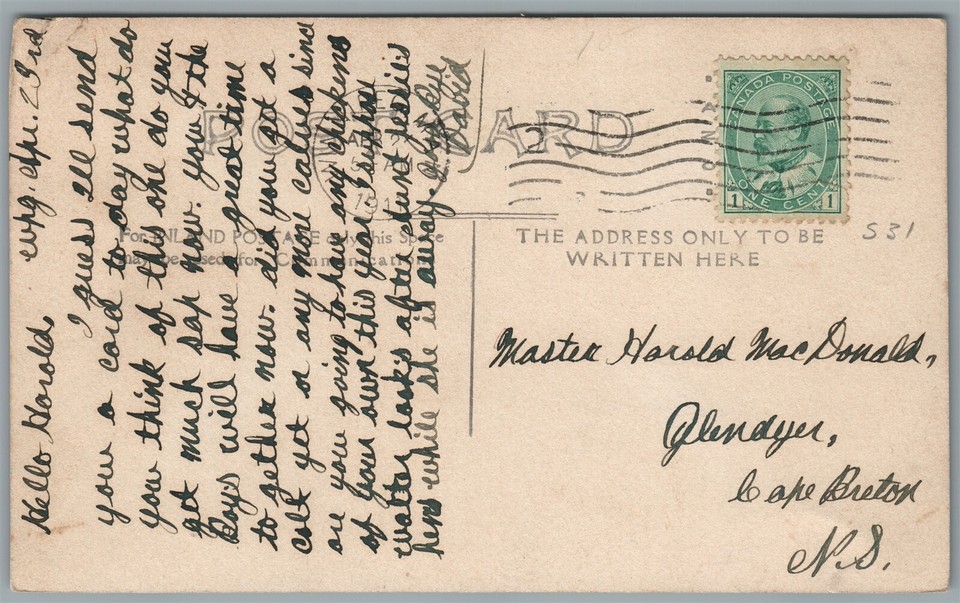 Hello Harold, Apr. 23rd
I guess Ill send
you a card to day what do
you think of this one do you
get much sap now. you & the
Boys will have a great time
to gether now. did you got a
colt yet or any more calves sins
are you going to have any chickens
of your own this year
walter looks after aunt
hens while she is away.
David
POST CARD
For INLAND POSTAGE only this Space
may be used for Communication
THE ADDRESS ONLY TO BE
WRITTEN HERE
CANADA POSTAGE
1 ONE CENT 1
531
Master Harold MacDonald,
Glendyer,
Cape Breton
N.S.